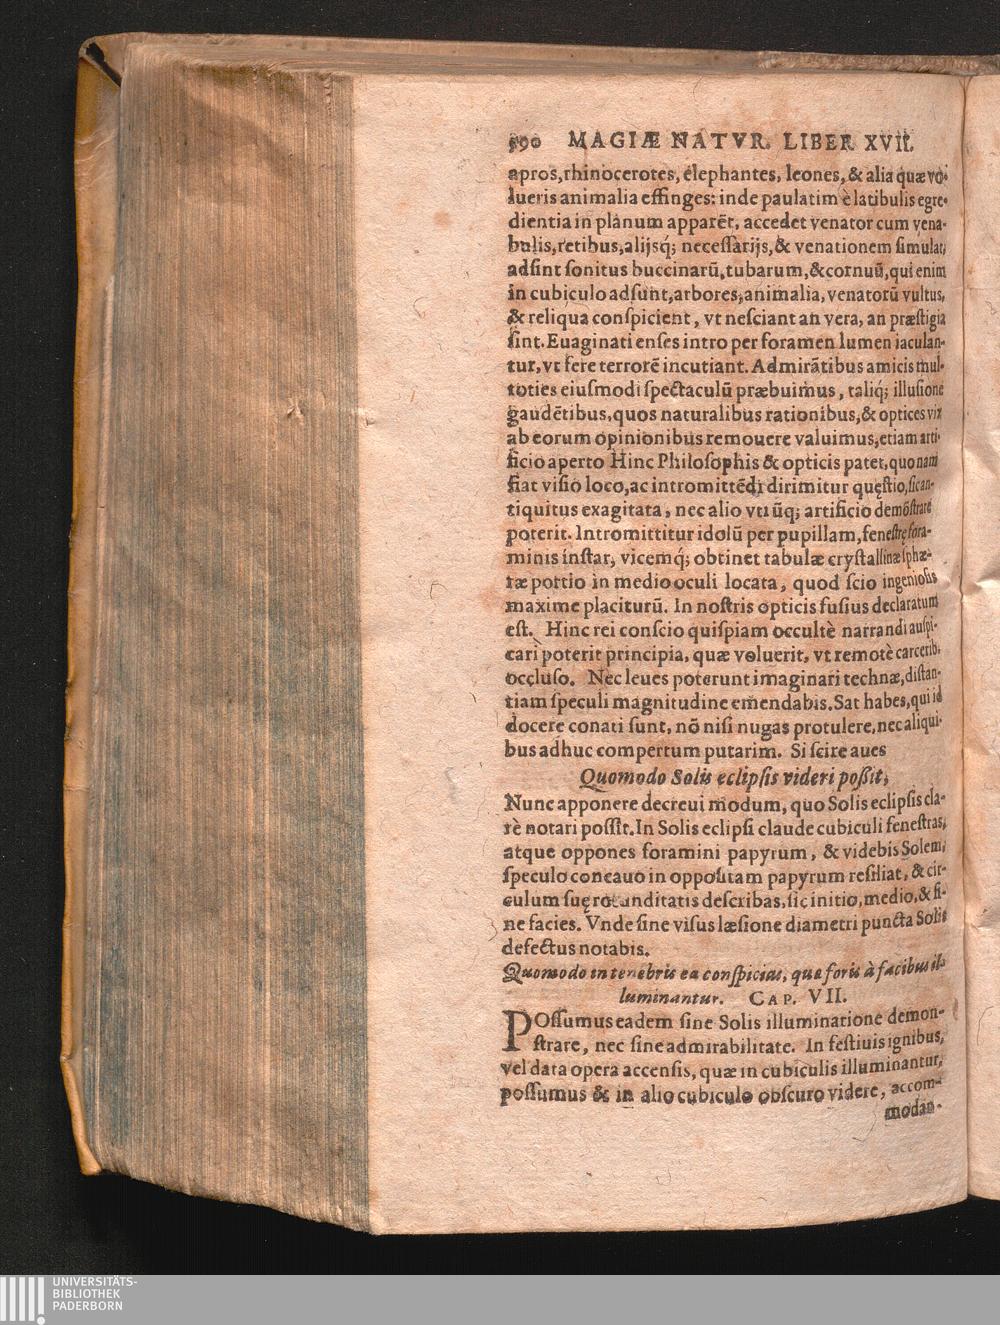 590 MAGIÆ NATVR. LIBER XVII.
apros, rhinocerotes, elephantes, leones, & alia quæ vo-
lueris animalia effinges: inde paulatim è latibulis egre-
dientia in planum apparēt, accedet venator cum vena-
bulis, retibus, alijsq́; neceſſarijs, & venationem ſimulat,
adſint ſonitus buccinarū, tubarum, & cornuū, qui enim
in cubiculo adſunt, arbores, animalia, venatorū vultus,
& reliqua conſpicient, vt neſciant an vera, an præſtigia
ſint. Euaginati enſes intro per foramen lumen iaculan-
tur, vt fere terrorē incutiant. Admirātibus amicis mul-
toties eiuſmodi ſpectaculū præbuimus, taliq́; illuſione
gaudētibus, quos naturalibus rationibus, & optices vix
ab eorum opinionibus remouere valuimus, etiam arti-
ficio aperto Hinc Philoſophis & opticis patet, quo nam
fiat viſio loco, ac intromittēdi dirimitur quęſtio, ſic an-
tiquitus exagitata, nec alio vtiūq; artificio demōſtrare
poterit. Intromittitur idolū per pupillam, feneſtrę fora-
minis inſtar, vicemq́; obtinet tabulæ cryſtallinæ ſphæ-
ræ portio in medio oculi locata, quod ſcio ingenioſis
maxime placiturū. In noſtris opticis fuſius declaratum
eſt. Hinc rei conſcio quiſpiam occultè narrandi auſpi-
cari poterit principia, quæ voluerit, vt remotè carcerib.
occluſo. Nec leues poterunt imaginari technæ, diſtan-
tiam ſpeculi magnitudine emendabis. Sat habes, qui id
docere conati ſunt, nō niſi nugas protulere, nec aliqui-
bus adhuc compertum putarim. Si ſcire aues
Quomodo Solis eclipſis videri poßit,
Nunc apponere decreui modum, quo Solis eclipſis cla-
rè notari poſſit. In Solis eclipſi claude cubiculi feneſtras,
atque oppones foramini papyrum, & videbis Solem,
ſpeculo concauo in oppoſitam papyrum reſiliat, & cir-
culum ſuę rotunditatis deſcribas, ſic initio, medio, & fi-
ne facies. Vnde ſine viſus læſione diametri puncta Solis
defectus notabis.
Quomodo in tenebris ea conſpicias, quæ foris à facibus il-
luminantur. CAP. VII.
POſſumus eadem ſine Solis illuminatione demon-
ſtrare, nec ſine admirabilitate. In feſtiuis ignibus,
vel data opera accenſis, quæ in cubiculis illuminantur,
poſſumus & in alio cubiculo obſcuro videre, accom-
modan-
UNIVERSITÄTS-
BIBLIOTHEK
PADERBORN